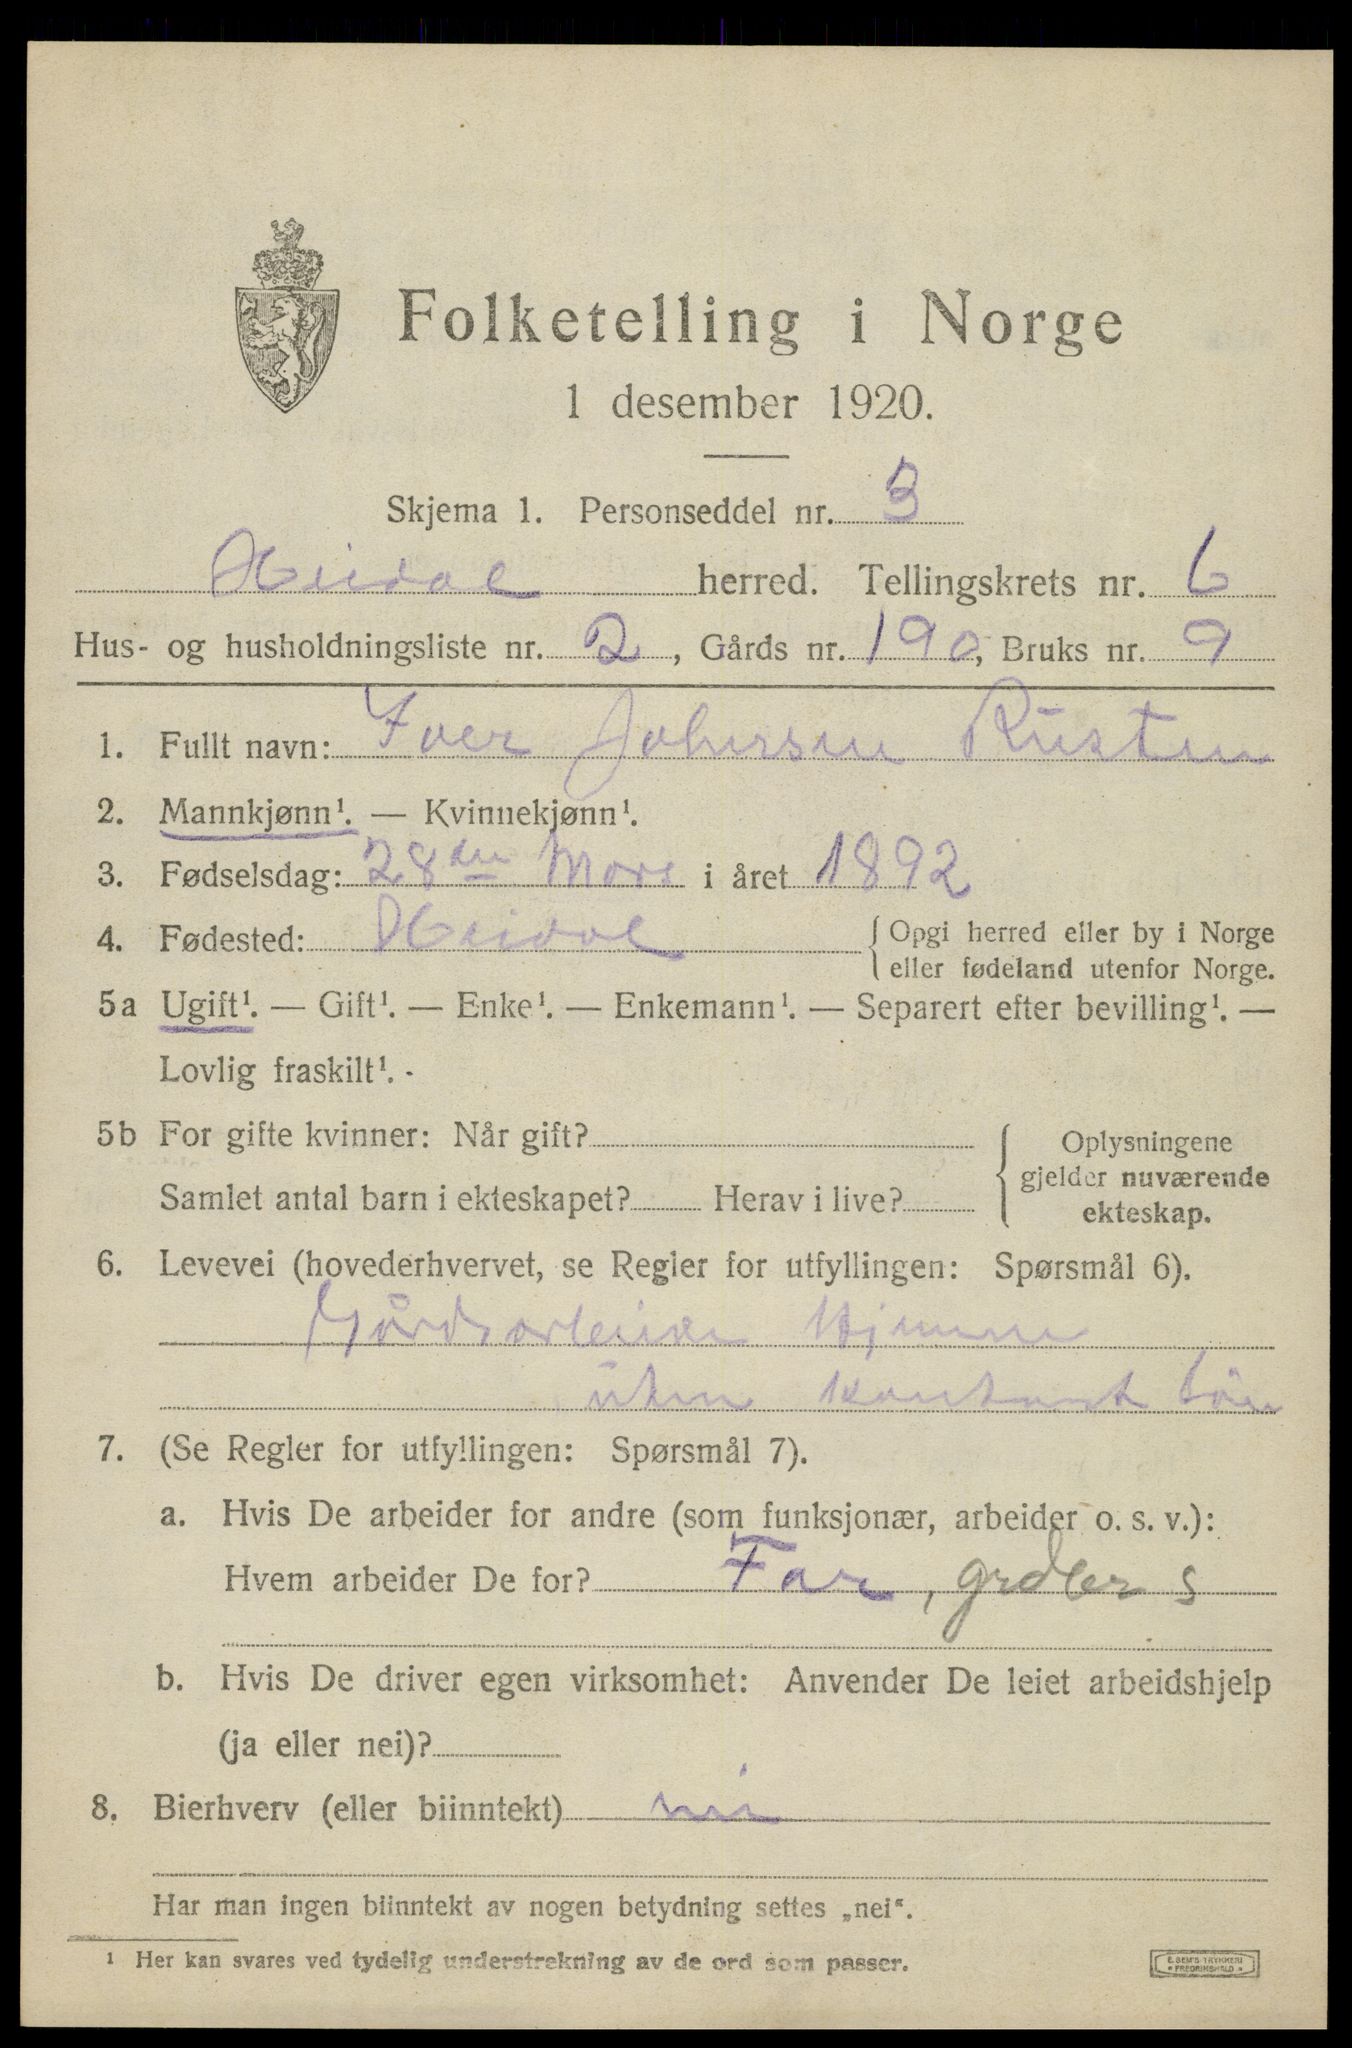 Folketelling i Norge
1 desember 1920.
Skjema 1. Personseddel nr. 3
Heidal herred. Tellingskrets nr. 6
Hus- og husholdningsliste nr. 2, Gårds nr. 190, Bruks nr. 9
1. Fullt navn: Iver Johnsen Rusten
2. Mannkjønn¹. — Kvinnekjønn¹.
3. Fødselsdag: 28de Mars i året 1892
4. Fødested: Heidal {Opgi herred eller by i Norge
eller fødeland utenfor Norge.
5a Ugift¹. — Gift¹. — Enke¹. — Enkemann¹. — Separert efter bevilling¹. —
Lovlig fraskilt¹. -
5b For gifte kvinner: Når gift?
Samlet antal barn i ekteskapet? Herav i live?
Oplysningene
gjelder nuværende
ekteskap.
6. Levevei (hovederhvervet, se Regler for utfyllingen: Spørsmål 6).
Gårdsarbeider Hjemme
uten kontant løn
7. (Se Regler for utfyllingen: Spørsmål 7).
a. Hvis De arbeider for andre (som funksjonær, arbeider o. s. v.):
Hvem arbeider De for? Far, grdbr s
b. Hvis De driver egen virksomhet: Anvender De leiet arbeidshjelp
(ja eller nei)?
8. Bierhverv (eller biinntekt) nei
Har man ingen biinntekt av nogen betydning settes „nei“.
¹ Her kan svares ved tydelig understrekning av de ord som passer.
E. SEM'S TRYKKERI
* FREDRIKSHALD *